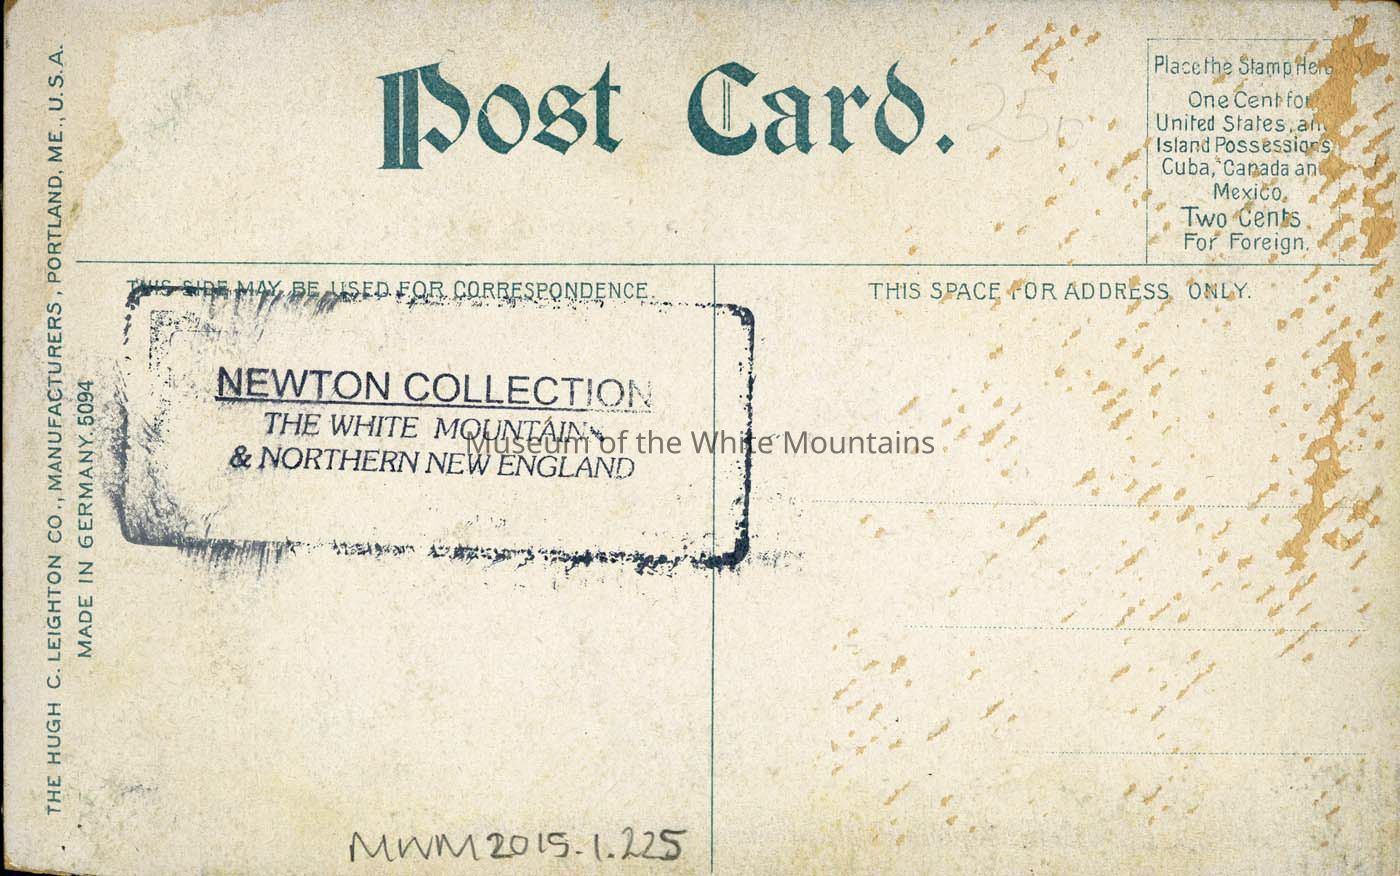 Post Card.
Place the Stamp Here
One Cent for
United States, an
Island Possessions,
Cuba, Canada an
Mexico.
Two Cents
For Foreign.
THIS SIDE MAY BE USED FOR CORRESPONDENCE.
THIS SPACE FOR ADDRESS ONLY.
THE HUGH C. LEIGHTON CO., MANUFACTURERS, PORTLAND, ME., U.S.A.
MADE IN GERMANY. 5094
NEWTON COLLECTION
THE WHITE MOUNTAINS
& NORTHERN NEW ENGLAND
Museum of the White Mountains
MWM2015.1.225